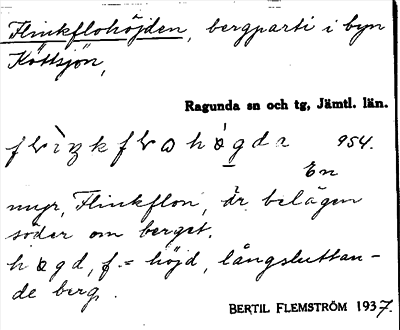 Flinkflohöjden, bergparti i byn
Köttsjön,
Ragunda sn och tg, Jämtl. län.
954.
En
myr, Flinkflon, är belägen
söder om berget.
högd, f. = höjd, långsluttan-
de berg.
BERTIL FLEMSTRÖM 1937.